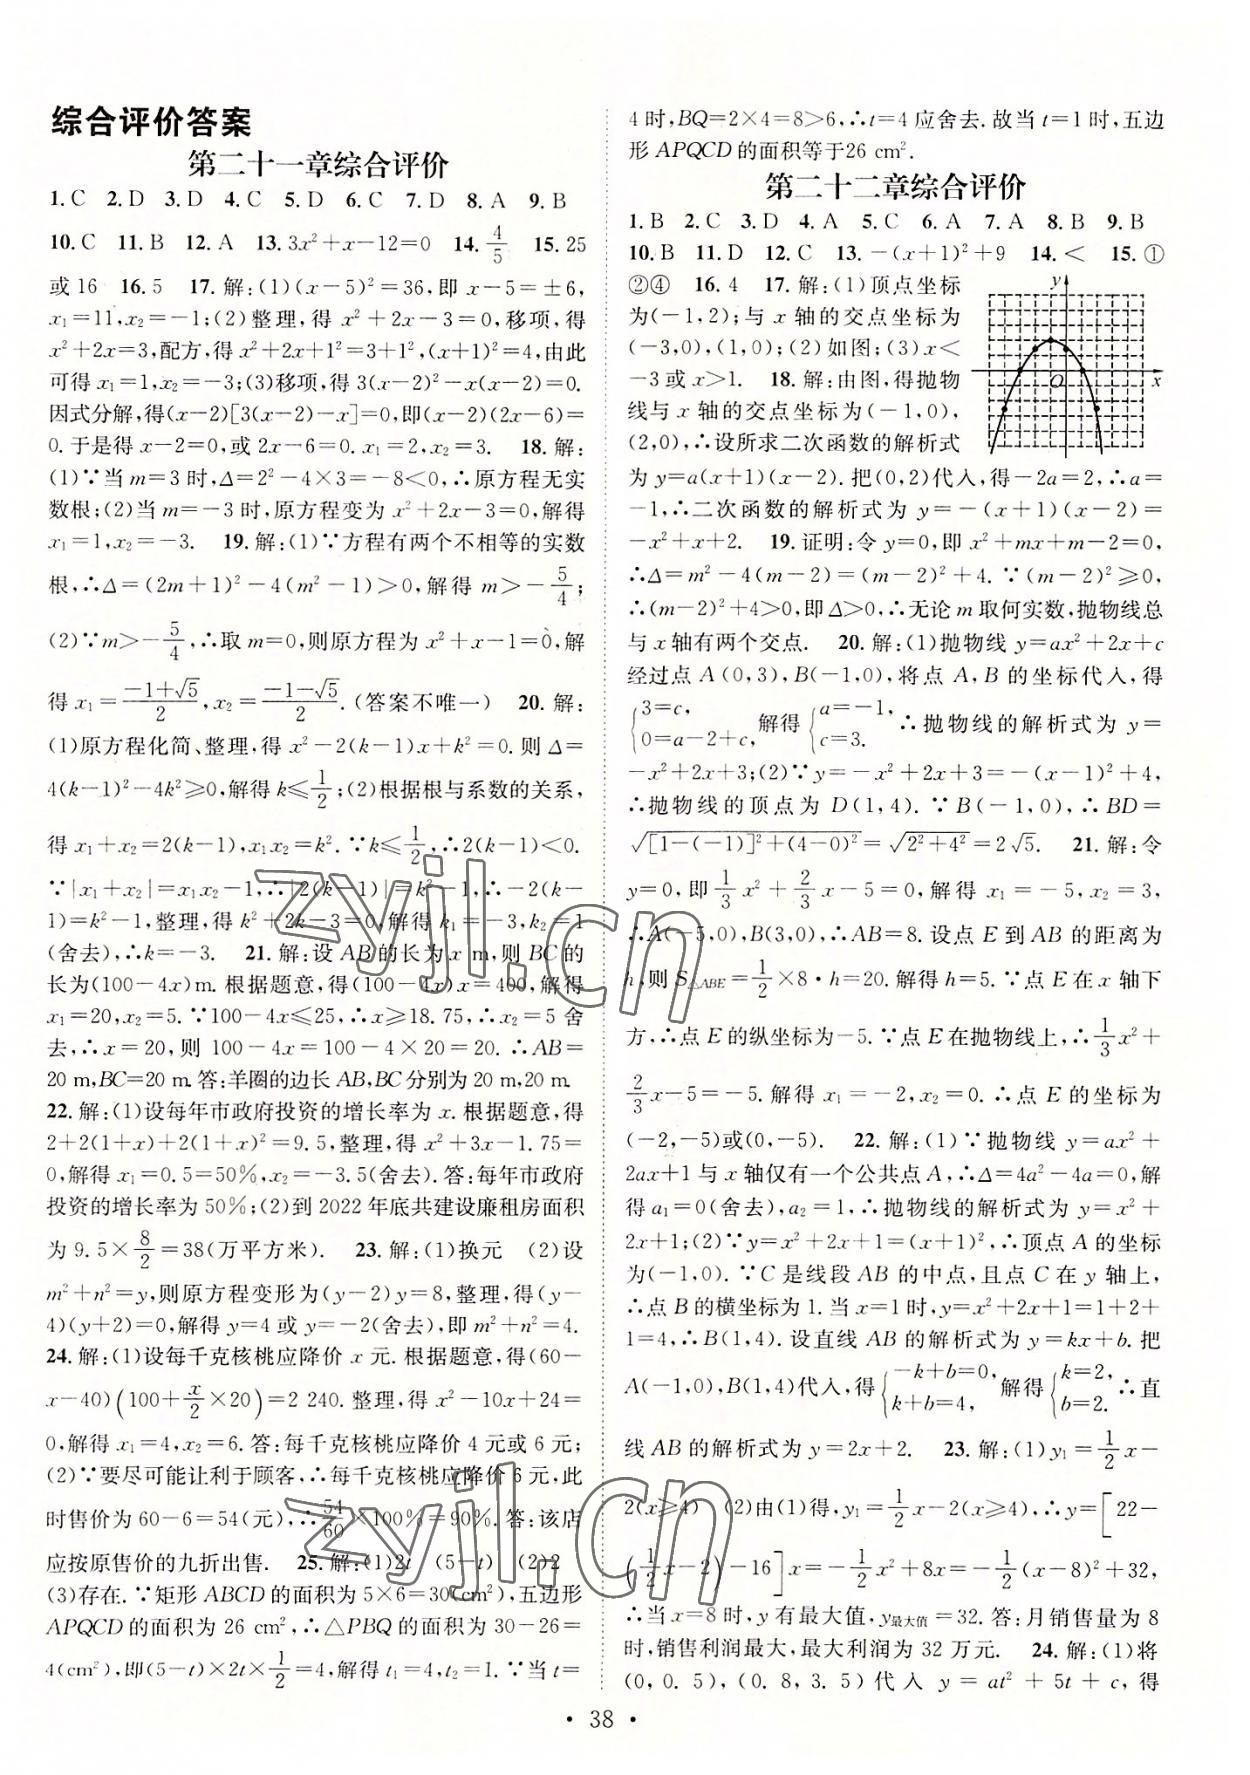 综合评价答案
第二十一章综合评价
1.C 2.D 3.D 4.C 5.D 6.C 7.D 8.A 9.B
10.C 11.B 12.A 13.3x²+x-12=0 14.4/5 15.25
或16 16.5 17.解:(1)(x-5)²=36,即x-5=±6,
x₁=11,x₂=-1;(2)整理,得x²+2x-3=0,移项,得
x²+2x=3,配方,得x²+2x+1²=3+1²,(x+1)²=4,由此
可得x₁=1,x₂=-3;(3)移项,得3(x-2)²-x(x-2)=0.
因式分解,得(x-2)[3(x-2)-x]=0,即(x-2)(2x-6)=
0.于是得x-2=0,或2x-6=0.x₁=2,x₂=3. 18.解:
(1)∵当m=3时,Δ=2²-4×3=-8<0,∴原方程无实
数根;(2)当m=-3时,原方程变为x²+2x-3=0,解得
x₁=1,x₂=-3. 19.解:(1)∵方程有两个不相等的实数
根,∴Δ=(2m+1)²-4(m²-1)>0,解得m>-5/4;
(2)∵m>-5/4,∴取m=0,则原方程为x²+x-1=0,解
得x₁=(-1+√5)/2,x₂=(-1-√5)/2.(答案不唯一) 20.解:
(1)原方程化简、整理,得x²-2(k-1)x+k²=0.则Δ=
4(k-1)²-4k²≥0,解得k≤1/2;(2)根据根与系数的关系,
得x₁+x₂=2(k-1),x₁x₂=k².∵k≤1/2,∴2(k-1)<0.
∵|x₁+x₂|=x₁x₂-1,∴|2(k-1)|=k²-1,∴-2(k-
1)=k²-1,整理,得k²+2k-3=0,解得k₁=-3,k₂=1
(舍去),∴k=-3. 21.解:设AB的长为x m,则BC的
长为(100-4x)m.根据题意,得(100-4x)x=400,解得
x₁=20,x₂=5.∵100-4x≤25,∴x≥18.75,∴x₂=5舍
去,∴x=20,则100-4x=100-4×20=20.∴AB=
20 m,BC=20 m.答:羊圈的边长AB,BC分别为20 m,20 m.
22.解:(1)设每年市政府投资的增长率为x.根据题意,得
2+2(1+x)+2(1+x)²=9.5,整理,得x²+3x-1.75=
0,解得x₁=0.5=50%,x₂=-3.5(舍去).答:每年市政府
投资的增长率为50%;(2)到2022年底共建设廉租房面积
为9.5×8/2=38(万平方米). 23.解:(1)换元 (2)设
m²+n²=y,则原方程变形为(y-2)y=8,整理,得(y-
4)(y+2)=0,解得y=4或y=-2(舍去),即m²+n²=4.
24.解:(1)设每千克核桃应降价x元.根据题意,得(60-
x-40)(100+x/2×20)=2 240.整理,得x²-10x+24=
0,解得x₁=4,x₂=6.答:每千克核桃应降价4元或6元;
(2)∵要尽可能让利于顾客,∴每千克核桃应降价6元,此
时售价为60-6=54(元),∴54/60×100%=90%.答:该店
应按原售价的九折出售. 25.解:(1)2t (5-t) (2)2
(3)存在.∵矩形ABCD的面积为5×6=30(cm²),五边形
APQCD的面积为26 cm²,∴△PBQ的面积为30-26=
4(cm²),即(5-t)×2t×1/2=4,解得t₁=4,t₂=1.∵当t=
4时,BQ=2×4=8>6,∴t=4应舍去.故当t=1时,五边
形APQCD的面积等于26 cm².
第二十二章综合评价
1.B 2.C 3.D 4.A 5.C 6.A 7.A 8.B 9.B
10.B 11.D 12.C 13.-(x+1)²+9 14.< 15.①
②④ 16.4 17.解:(1)顶点坐标
为(-1,2);与x轴的交点坐标为
(-3,0),(1,0);(2)如图;(3)x<
-3或x>1. 18.解:由图,得抛物
线与x轴的交点坐标为(-1,0),
(2,0),∴设所求二次函数的解析式
y
O
x
为y=a(x+1)(x-2).把(0,2)代入,得-2a=2,∴a=
-1,∴二次函数的解析式为y=-(x+1)(x-2)=
-x²+x+2. 19.证明:令y=0,即x²+mx+m-2=0,
∴Δ=m²-4(m-2)=(m-2)²+4.∵(m-2)²≥0,
∴(m-2)²+4>0,即Δ>0,∴无论m取何实数,抛物线总
与x轴有两个交点. 20.解:(1)抛物线y=ax²+2x+c
经过点A(0,3),B(-1,0),将点A,B的坐标代入,得
{3=c, 0=a-2+c, 解得{a=-1, c=3. ∴抛物线的解析式为y=
-x²+2x+3;(2)∵y=-x²+2x+3=-(x-1)²+4,
∴抛物线的顶点为D(1,4).∵B(-1,0),∴BD=
√([1-(-1)]²+(4-0)²)=√(2²+4²)=2√5. 21.解:令
y=0,即1/3x²+2/3x-5=0,解得x₁=-5,x₂=3,
∴A(-5,0),B(3,0),∴AB=8.设点E到AB的距离为
h,则S△ABE=1/2×8·h=20.解得h=5.∵点E在x轴下
方,∴点E的纵坐标为-5.∵点E在抛物线上,∴1/3x²+
2/3x-5=-5.解得x₁=-2,x₂=0.∴点E的坐标为
(-2,-5)或(0,-5). 22.解:(1)∵抛物线y=ax²+
2ax+1与x轴仅有一个公共点A,∴Δ=4a²-4a=0,解
得a₁=0(舍去),a₂=1,∴抛物线的解析式为y=x²+
2x+1;(2)∵y=x²+2x+1=(x+1)²,∴顶点A的坐标
为(-1,0).∵C是线段AB的中点,且点C在y轴上,
∴点B的横坐标为1.当x=1时,y=x²+2x+1=1+2+
1=4,∴B(1,4).设直线AB的解析式为y=kx+b.把
A(-1,0),B(1,4)代入,得{-k+b=0, k+b=4, 解得{k=2, b=2. ∴直
线AB的解析式为y=2x+2. 23.解:(1)y₁=1/2x-
2(x≥4) (2)由(1)得,y₁=1/2x-2(x≥4),∴y=[22-
(1/2x-2)-16]x=-1/2x²+8x=-1/2(x-8)²+32,
∴当x=8时,y有最大值,y最大值=32.答:月销售量为8
时,销售利润最大,最大利润为32万元. 24.解:(1)将
(0,0.5),(0.8,3.5)代入y=at²+5t+c,得
·38·
zyjl.cn
zyjl.cn